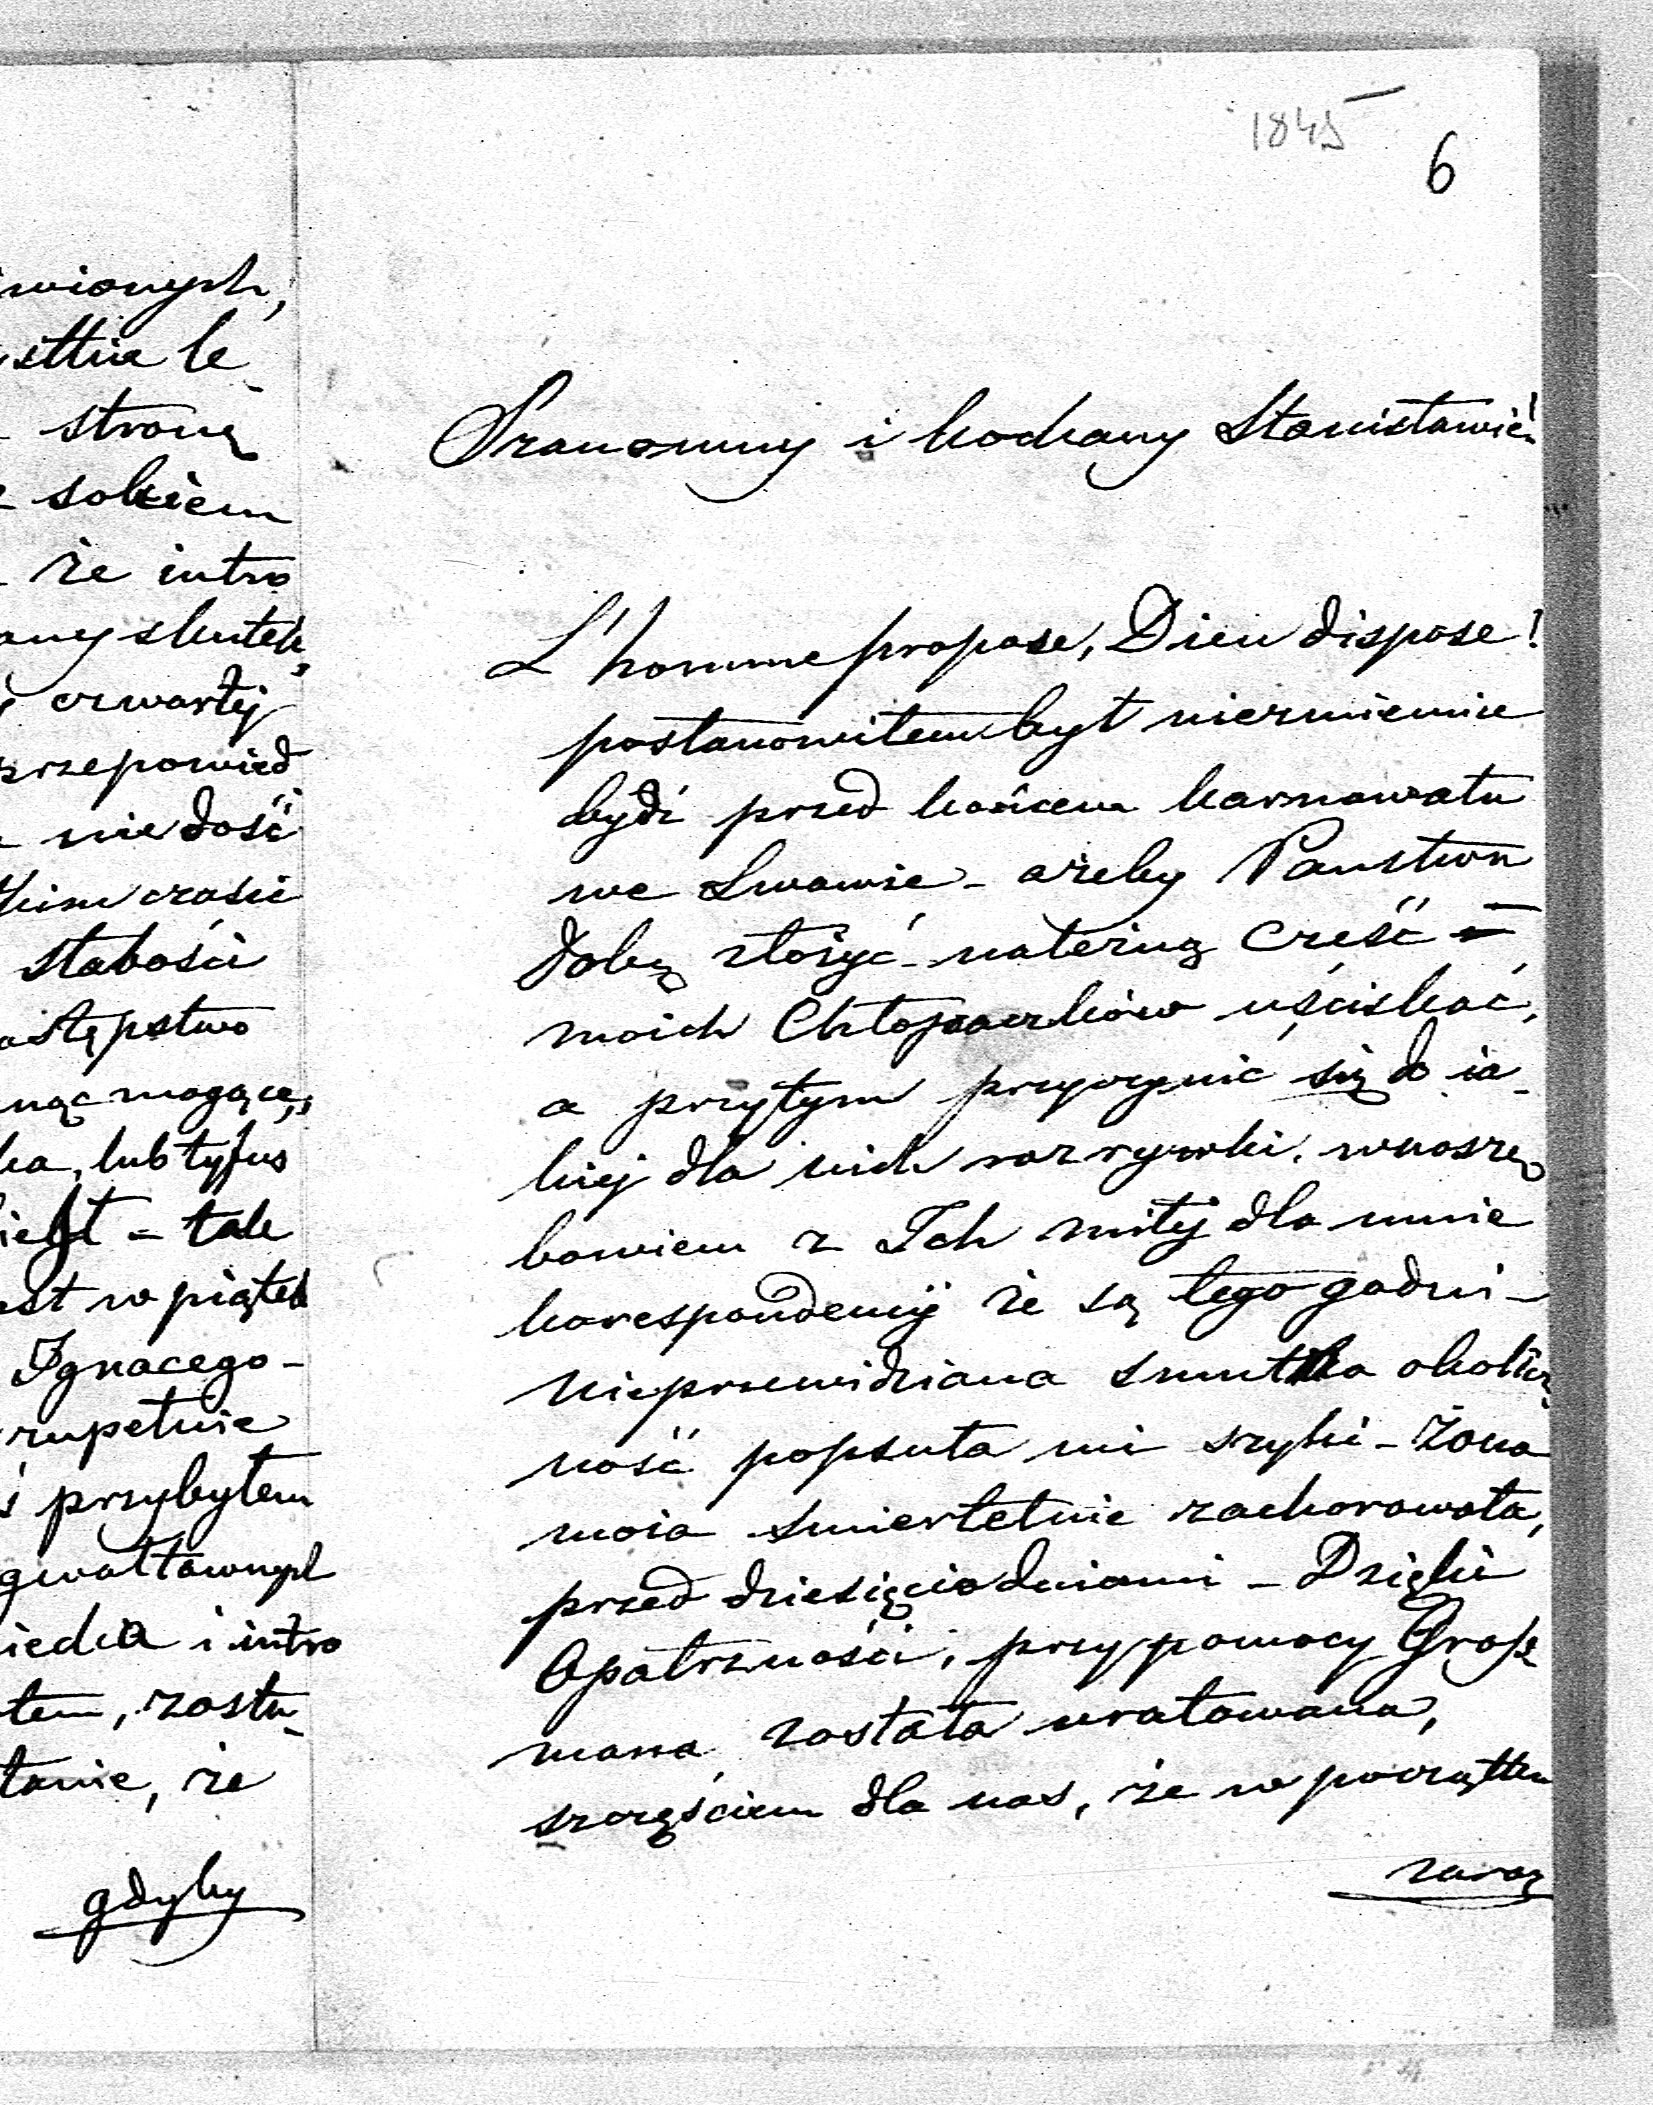 iwionych,
stkie le
strong
sobiem
że iutro
any skutek,
czwartéj
przepowied
niedość
kim czasie
słabości
astępstwo
nąc mogące,
ka, lub tyfus
tak
w piątek
Ignacego -
zupełnie
przybyłem
gwałtownych
iedna i iutro
tem, zostu
tanie, że
gdyby
1845
6
Szanowny i kochany Stanisławie!
L'homme propose, Dieu dispose!
postanowiłem był niezmiennie
bydź przed końcem karnawału
we Lwowie - ażeby Państwu
Dobr. złożyć - należną Cześć -
moich Chłopaczków uściskać,
a przytym przyczynić się do ia-
kiej dla nich rozrywki, wnoszę
bowiem z Ich miłéj dla mnie
korespondencyi że są tego godni -
nieprzewidziana smutna okolicz
ność popsuła mi szyki - Żona
moia śmiertelnie zachorowała,
przed dziesięcio dniami - Dzięki
Opatrzności, przy pomocy Gross
mana, została uratowana,
szczęściem dla nas, że w początku
zaraz